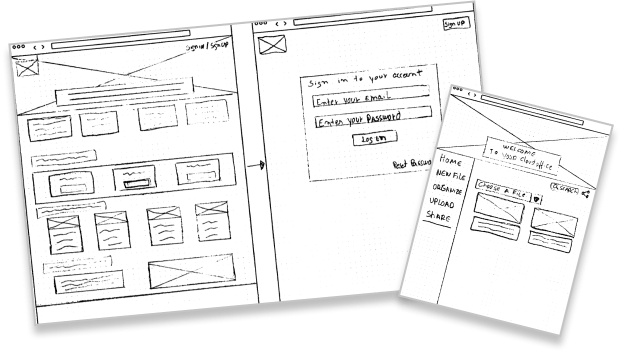 Sign in / Sign up
Sign up
Sign in to your account
Enter your Email
Enter your Password
Log in
Reset Password
WELCOME
To your Cloud office
HOME
NEW FILE
ORGANIZE
UPLOAD
SHARE
SEARCH
CHOOSE A FILE